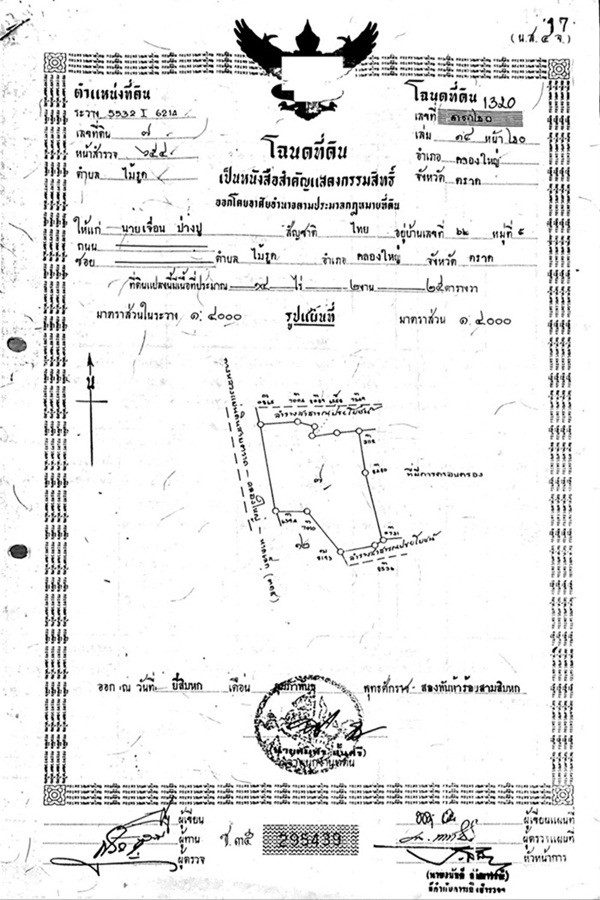 17
(น.ส.๔ จ.)
ตำแหน่งที่ดิน
ระวาง 5532 I 6214
เลขที่ดิน ๗
หน้าสำรวจ ๖๕๔
ตำบล ไม้รูด
โฉนดที่ดิน
เลขที่ 1320
เล่ม ๑๔ หน้า ๒๐
อำเภอ คลองใหญ่
จังหวัด ตราด
โฉนดที่ดิน
เป็นหนังสือสำคัญแสดงกรรมสิทธิ์
ออกโดยอาศัยอำนาจตามประมวลกฎหมายที่ดิน
ให้แก่ นายเจื่อน ปางปู สัญชาติ ไทย อยู่บ้านเลขที่ ๖๒ หมู่ที่ ๕
ถนน
ซอย ตำบล ไม้รูด อำเภอ คลองใหญ่ จังหวัด ตราด
ที่ดินแปลงนี้มีเนื้อที่ประมาณ ๑๔ ไร่ ๒ งาน ๒๕ ตารางวา
มาตราส่วนในระวาง ๑:๔๐๐๐ รูปแผนที่ มาตราส่วน ๑:๔๐๐๐
น
ลำรางสาธารณประโยชน์
๗
ที่มีการครอบครอง
๑๒
ลำรางสาธารณประโยชน์
ออก ณ วันที่ ยี่สิบหก เดือน กุมภาพันธ์ พุทธศักราช สองพันห้าร้อยสามสิบหก
เจ้าพนักงานที่ดิน
ผู้เขียน
ผู้ทาน
ผู้ตรวจ
ช.๓๕ 295439
ผู้เขียนแผนที่
ผู้ตรวจแผนที่
หัวหน้าการ